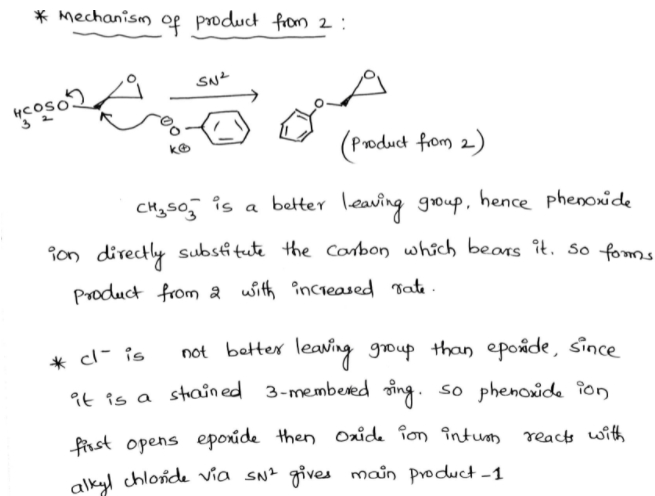 * Mechanism of product from 2 :
SN²
H3CO2SO
O
O
⊖O
K⊕
O
(Product from 2)
CH3SO3⁻ is a better leaving group, hence phenoxide
ion directly substitute the carbon which bears it. so forms
product from 2 with increased rate .
* cl⁻ is not better leaving group than epoxide, since
it is a stained 3-membered ring. so phenoxide ion
first opens epoxide then oxide ion inturn reacts with
alkyl chloride via SN² gives main product -1